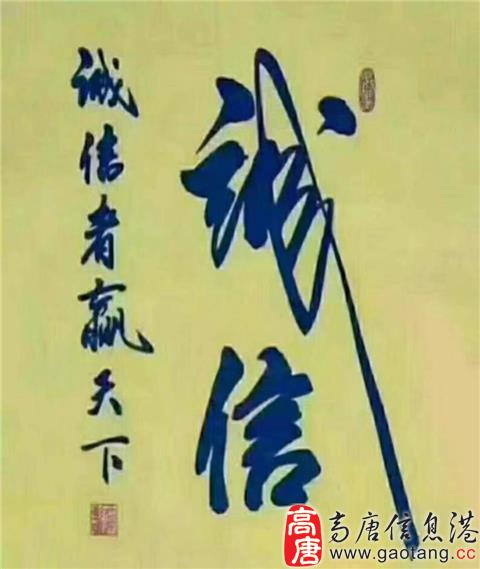 诚信
诚信者赢天下
高唐
高唐信息港
www.gaotang.cc